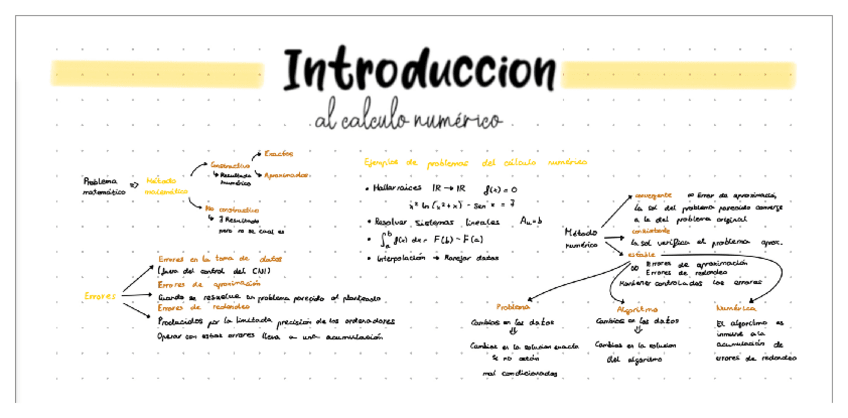 Introduccion
al calculo numérico
Problema matemático => Método matemático
Constructivo
↳ Resultado numérico
Exactos
Aproximados
No constructivo
↳ ∃ Resultado
pero no sé cual es
Errores
Errores en la toma de datos
(fuera del control del CN)
Errores de aproximación
Cuando se resuelve un problema parecido al planteado
Errores de redondeo
Producidos por la limitada precisión de los ordenadores
Operar con estos errores lleva a una acumulación
Ejemplos de problemas del cálculo numérico
• Hallar raices IR → IR f(x) = 0
• Resolver sistemas lineales Au=b
• ∫ₐᵇ f(x) dx = F(b) - F(a)
• Interpolación → Manejar datos
Método numérico
convergente ∞ Error de aproximación
La sol del problema parecido converge
a la del problema original
consistente
la sol verifica el problema aprox.
estable
Errores de aproximación
Errores de redondeo
Mantener controlados los errores
Problema
Cambios en los datos
⇓
Cambios en la solucion exacta
Si no están
mal condicionados
Algoritmo
Cambios en los datos
⇓
Cambios en la solucion
del algoritmo
Numérica
El algoritmo es
inmune a la
acumulación de
errores de redondeo